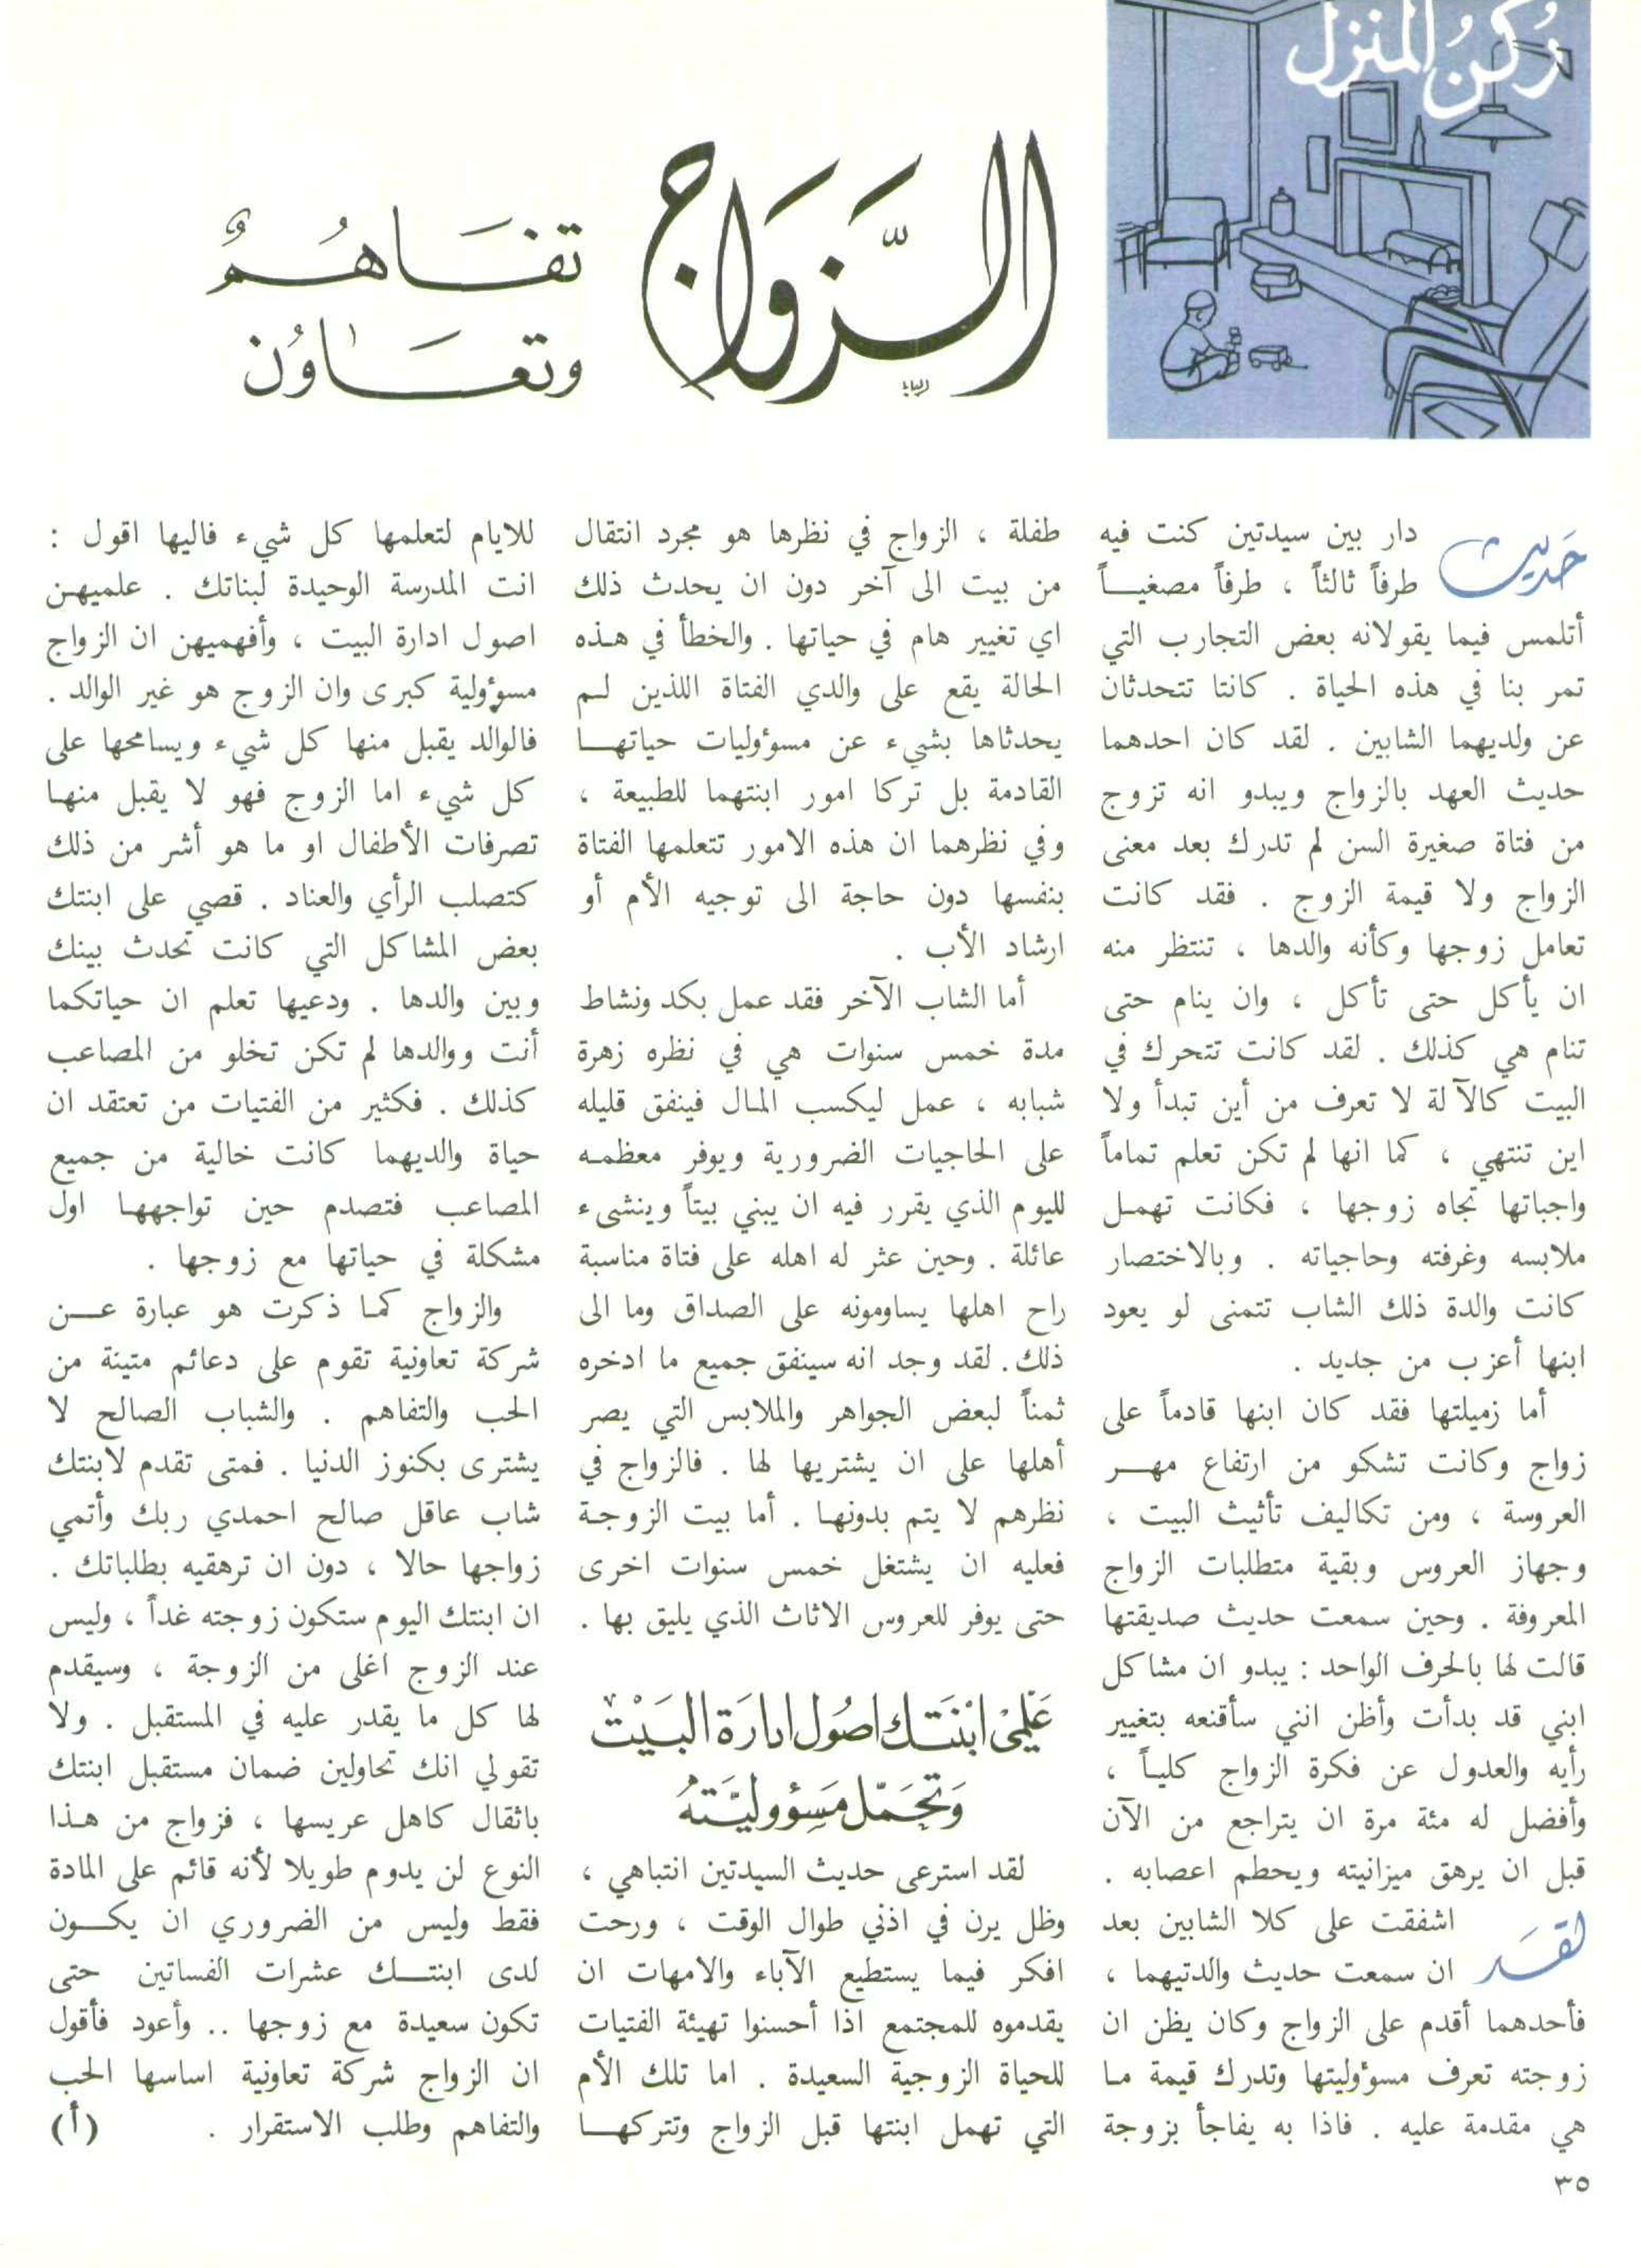 ركن المنزل
الزواج
تفاهم
وتعاون
حديث دار بين سيدتين كنت فيه
طرفاً ثالثاً ، طرفاً مصغيــاً
أتلمس فيما يقولانه بعض التجارب التي
تمر بنا في هذه الحياة . كانتا تتحدثان
عن ولديهما الشابين . لقد كان احدهما
حديث العهد بالزواج ويبدو انه تزوج
من فتاة صغيرة السن لم تدرك بعد معنى
الزواج ولا قيمة الزوج . فقد كانت
تعامل زوجها وكأنه والدها ، تنتظر منه
ان يأكل حتى تأكل ، وان ينام حتى
تنام هي كذلك . لقد كانت تتحرك في
البيت كالآلة لا تعرف من أين تبدأ ولا
اين تنتهي ، كما انها لم تكن تعلم تماماً
واجباتها تجاه زوجها ، فكانت تهمـل
ملابسه وغرفته وحاجياته . وبالاختصار
كانت والدة ذلك الشاب تتمنى لو يعود
ابنها أعزب من جديد .
أما زميلتها فقد كان ابنها قادماً على
زواج وكانت تشكو من ارتفاع مهـــر
العروسة ، ومن تكاليف تأثيث البيت ،
وجهاز العروس وبقية متطلبات الزواج
المعروفة . وحين سمعت حديث صديقتها
قالت لها بالحرف الواحد : يبدو ان مشاكل
ابني قد بدأت وأظن انني سأقنعه بتغيير
رأيه والعدول عن فكرة الزواج كليـاً ،
وأفضل له مئة مرة ان يتراجع من الآن
قبل ان يرهق ميزانيته ويحطم اعصابه .
لقد اشفقت على كلا الشابين بعد
ان سمعت حديث والدتيهما ،
فأحدهما أقدم على الزواج وكان يظن ان
زوجته تعرف مسؤوليتها وتدرك قيمة مـا
هي مقدمة عليه . فاذا به يفاجأ بزوجة
طفلة ، الزواج في نظرها هو مجرد انتقال
من بيت الى آخر دون ان يحدث ذلك
اي تغيير هام في حياتها . والخطأ في هـذه
الحالة يقع على والدي الفتاة اللذين لـم
يحدثاها بشيء عن مسؤوليات حياتهــا
القادمة بل تركا امور ابنتهما للطبيعة ،
وفي نظرهما ان هذه الامور تتعلمها الفتاة
بنفسها دون حاجة الى توجيه الأم أو
ارشاد الأب .
أما الشاب الآخر فقد عمل بكد ونشاط
مدة خمس سنوات هي في نظره زهرة
شبابه ، عمل ليكسب المـال فينفق قليله
على الحاجيات الضرورية ويوفر معظمـه
لليوم الذي يقرر فيه ان يبني بيتاً وينشىء
عائلة . وحين عثر له اهله على فتاة مناسبة
راح اهلها يساومونه على الصداق وما الى
ذلك . لقد وجد انه سينفق جميع ما ادخره
ثمناً لبعض الجواهر والملابس التي يصر
أهلها على ان يشتريها لها . فالزواج في
نظرهم لا يتم بدونهـا . أما بيت الزوجـة
فعليه ان يشتغل خمس سنوات اخرى
حتى يوفر للعروس الاثاث الذي يليق بها .
عَلِّمي ابْنَتَـك اصُول ادارَة البَـيْت
وَتَحَمّل مَسؤوليَّتَهُ
لقد استرعى حديث السيدتين انتباهي ،
وظل يرن في اذني طوال الوقت ، ورحت
افكر فيما يستطيع الآباء والامهات ان
يقدموه للمجتمع اذا أحسنوا تهيئة الفتيات
للحياة الزوجية السعيدة . اما تلك الأم
التي تهمل ابنتها قبل الزواج وتتركهــا
للايام لتعلمها كل شيء فاليها اقول :
انت المدرسة الوحيدة لبناتك . علميهـن
اصول ادارة البيت ، وأفهميهن ان الزواج
مسؤولية كبرى وان الزوج هو غير الوالد .
فالوالد يقبل منها كل شيء ويسامحها على
كل شيء اما الزوج فهو لا يقبل منهـا
تصرفات الأطفال او ما هو أشر من ذلك
كتصلب الرأي والعناد . قصي على ابنتك
بعض المشاكل التي كانت تحدث بينك
وبين والدها . ودعيها تعلم ان حياتكما
أنت ووالدها لم تكن تخلو من المصاعب
كذلك . فكثير من الفتيات من تعتقد ان
حياة والديهما كانت خالية من جميع
المصاعب فتصدم حين تواجههـا اول
مشكلة في حياتها مع زوجها .
والزواج كمـا ذكرت هو عبارة عـــن
شركة تعاونية تقوم على دعائم متينة من
الحب والتفاهم . والشباب الصالح لا
يشترى بكنوز الدنيا . فمتى تقدم لابنتك
شاب عاقل صالح احمدي ربك وأتمي
زواجها حالا ، دون ان ترهقيه بطلباتك .
ان ابنتك اليوم ستكون زوجته غداً ، وليس
عند الزوج اغلى من الزوجة ، وسيقدم
لها كل ما يقدر عليه في المستقبل . ولا
تقولي انك تحاولين ضمان مستقبل ابنتك
باثقال كاهل عريسها ، فزواج من هـذا
النوع لن يدوم طويلا لأنه قائم على المادة
فقط وليس من الضروري ان يكـــون
لدى ابنتـــك عشرات الفساتين حتى
تكون سعيدة مع زوجها .. وأعود فأقول
ان الزواج شركة تعاونية اساسها الحب
والتفاهم وطلب الاستقرار . (أ)
٣٥